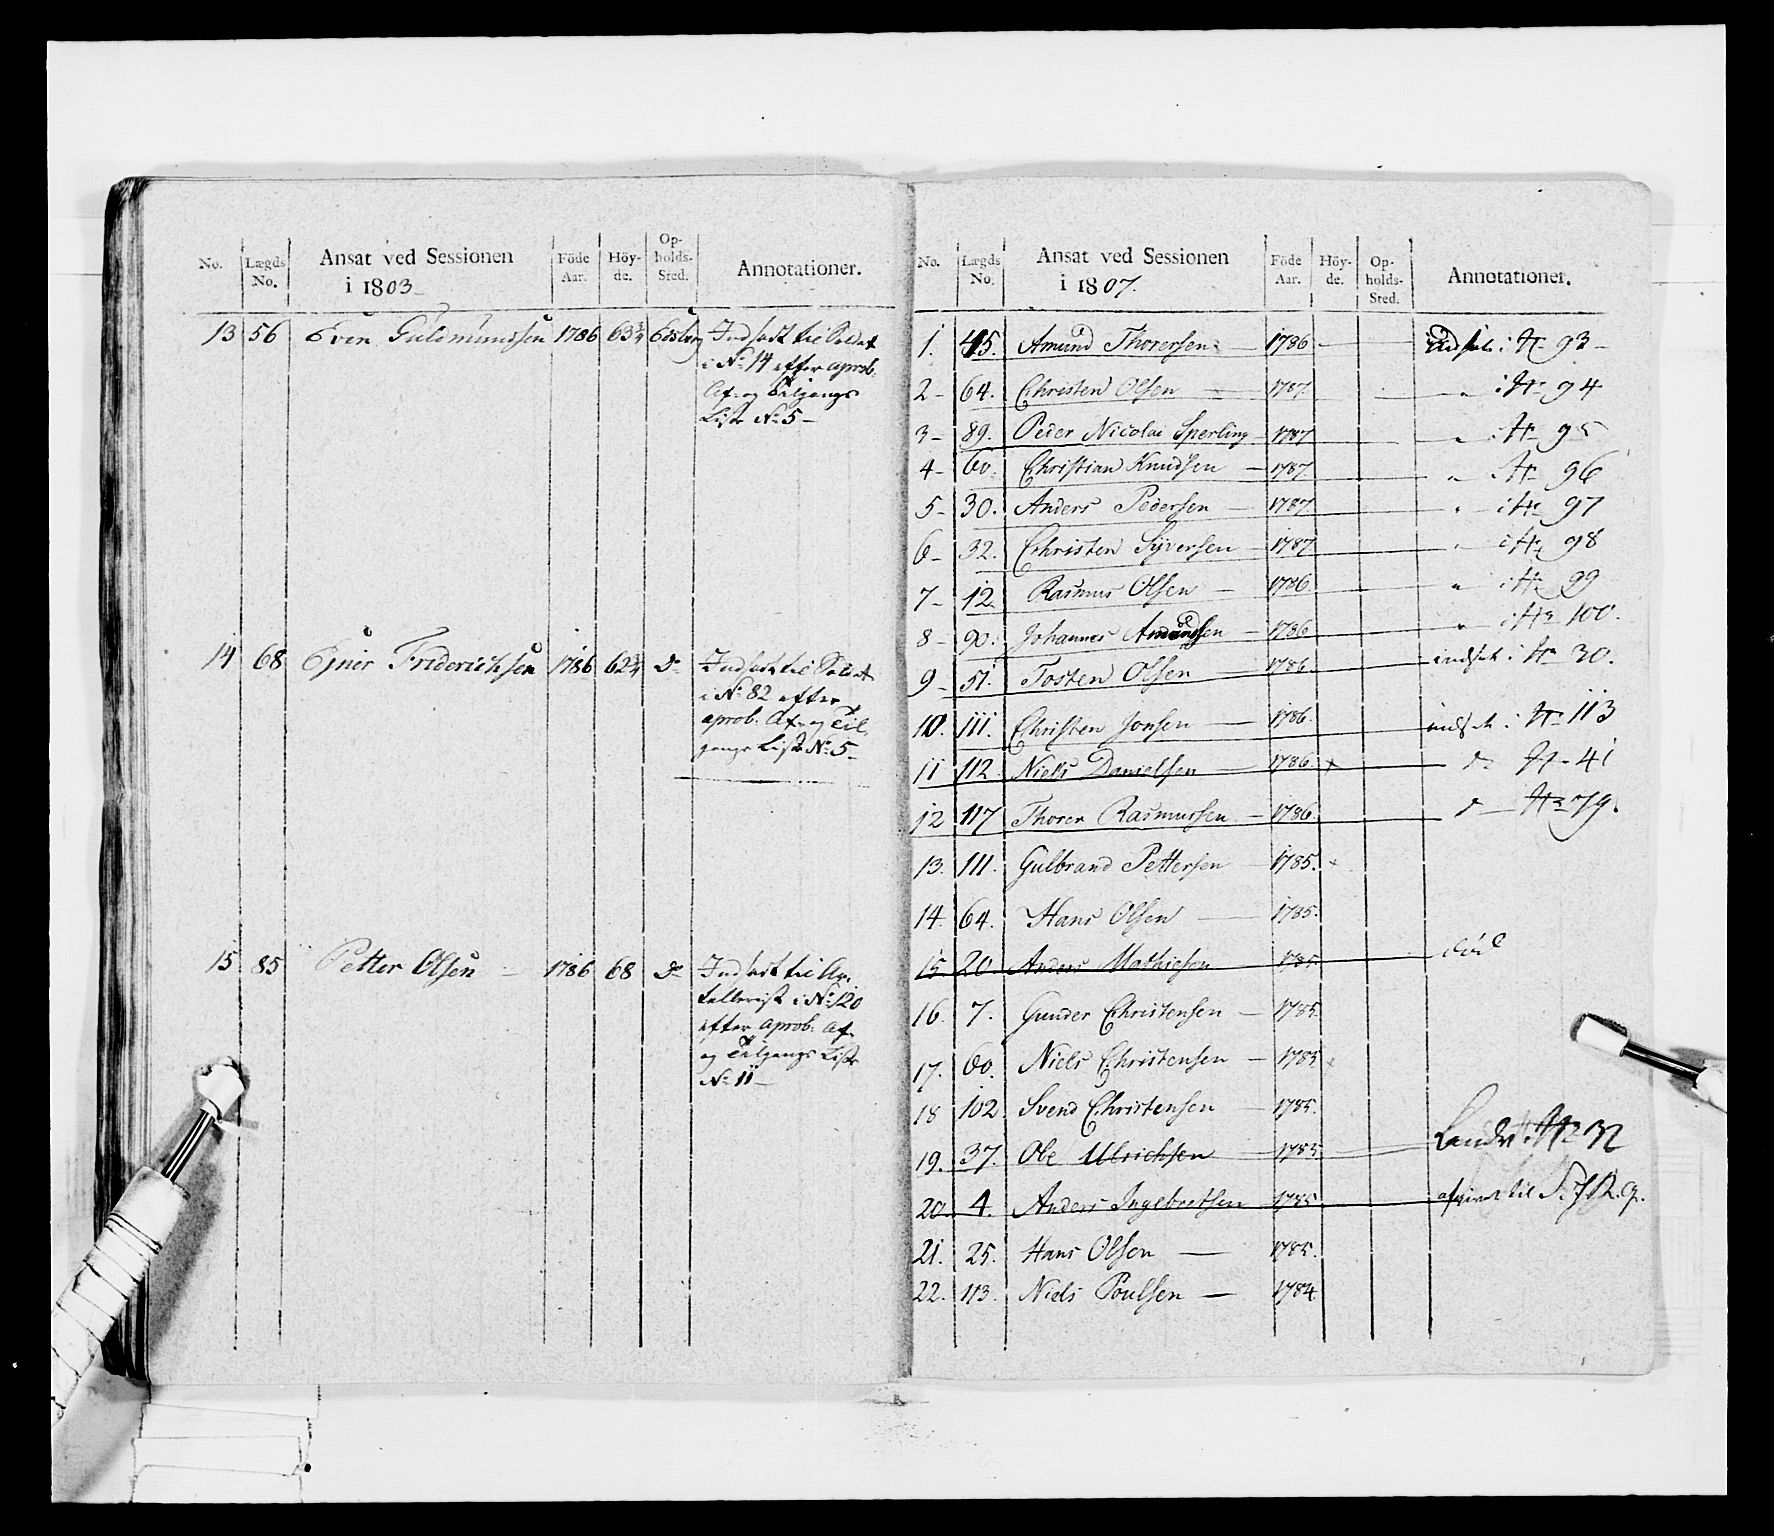 No. Lægds No. Ansat ved Sessionen i 1803 Föde Aar. Höy-de. Op-holds-Sted. Annotationer.
13 56 Even Guldmundsen 1786 63¾ Edsberg Indsadt til Soldat
i No 14 efter aprob.
Af- og Tilgangs
Liste No 5 –
14 68 Ejner Friderichsen 1786 62¾ do Indsadt til Soldat
i No 82 efter
aprob. Af- og Til-
gangs Liste No 5 –
15 85 Petter Olsen – 1786 68 do Indsadt til Ar-
tellerist i No 120
efter aprob. Af-
og Tilgangs Liste
No 11 –
No. Lægds No. Ansat ved Sessionen i 1807. Föde Aar. Höy-de. Op-holds-Sted. Annotationer.
1. 45. Amund Thorersen 1786 indsat i No 93 –
2 – 64. Christen Olsen 1787 " i No 94
3 – 89. Peder Nicolai Sperling – 1787 " i No 95
4 – 60. Christian Knudsen – 1787 " i No 96
5 – 30. Anders Pedersen – 1787 " i No 97
6 – 32. Christen Syversen – 1787 " i No 98
7 – 12. Rasmus Olsen – 1786 " i No 99
8 – 90. Johannes Amundsen – 1786 " i No 100.
9 – 51. Tosten Olsen – 1786 indsat i No 30.
10. 111. Christen Jonsen – 1786. indsat i No 113
11 112. Niels Danielsen – 1786. x do No 41
12 117 Thorer Rasmussen – 1786. do No 79.
13. 111. Gulbrand Pettersen – 1785. x
14. 64. Hans Olsen – 1785.
15 20. Anders Mathiesen 1785. död
16. 7. Gunder Christensen – 1785.
17. 60. Niels Christensen – 1785 x
18 102 Svend Christensen – 1785.
19. 37. Ole Ulrichsen – 1785. Landv. No 32
20. 4. Anders Ingebretsen 1785. afgivet til
21. 25. Hans Olsen – 1785.
22. 113. Niels Poulsen – 1784.